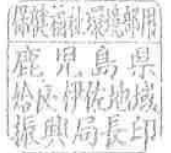 保健福祉環境部用
鹿児島県
姶良・伊佐地域
振興局長印